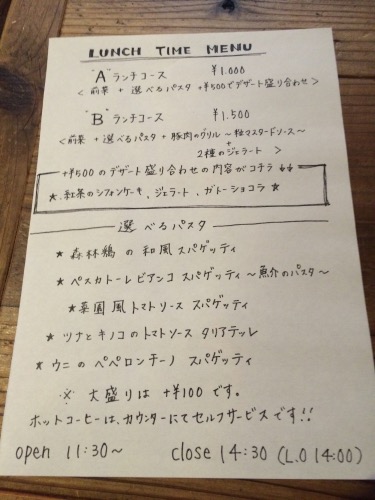 LUNCH TIME MENU
"A"ランチコース ¥1.000
<前菜 + 選べるパスタ +¥500でデザート盛り合わせ>
"B"ランチコース ¥1.500
<前菜 + 選べるパスタ + 豚肉のグリル ~粒マスタードソース~
+
2種のジェラート >
+¥500 のデザート盛り合わせの内容がコチラ ↓↓
★ 紅茶のシフォンケーキ、ジェラート、ガトーショコラ ★
選べるパスタ
★ 森林鶏 の 和風 スパゲッティ
★ ペスカトーレ ビアンコ スパゲッティ ~魚介のパスタ~
★ 菜園 風 トマトソース スパゲッティ
★ ツナと キノコ のトマトソース タリアテッレ
★ ウニ の ペペロンチーノ スパゲッティ
※ 大盛りは +¥100 です。
ホットコーヒーは、カウンターにてセルフサービスです!!
open 11:30~ close 14:30 (L.O 14:00)